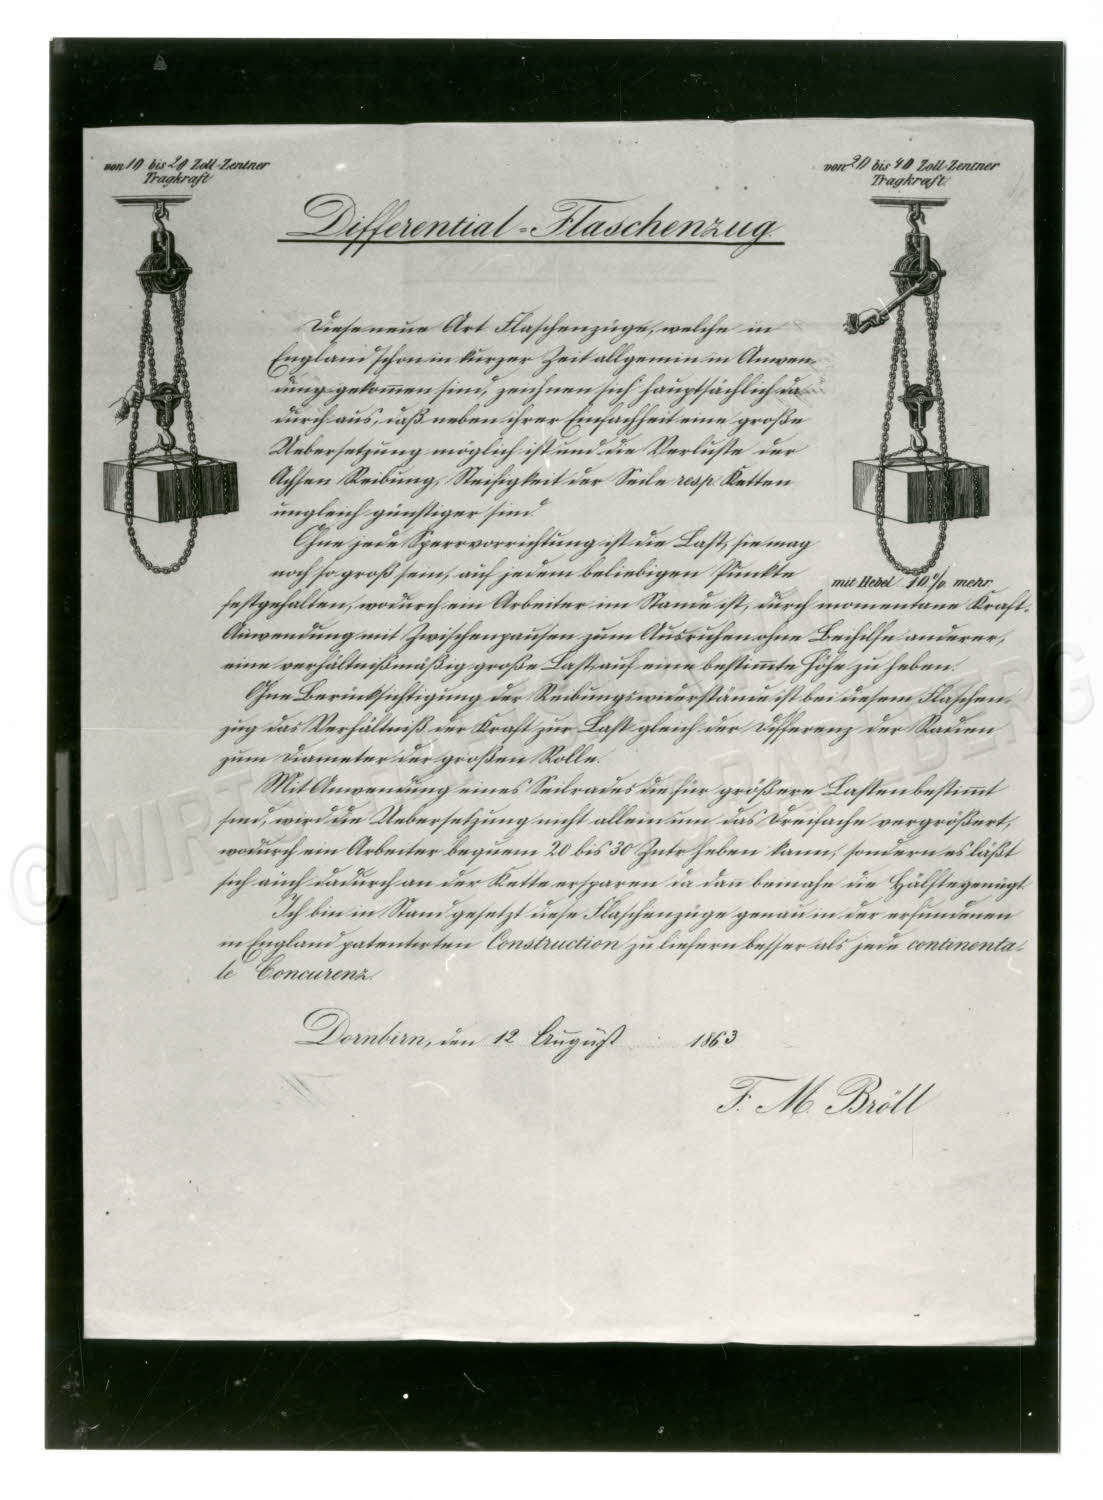 von 10 bis 20 Zoll-Zentner
Tragkraft
von 20 bis 40 Zoll-Zentner
Tragkraft
Differential-Flaschenzug.
Diese neue Art Flaschenzüge, welche in
England schon in kurzer Zeit allgemein in Anwen-
dung gekommen sind, zeichnen sich hauptsächlich da-
durch aus, daß neben ihrer Einfachheit eine große
Uebersetzung möglich ist und die Verluste der
Achsen Reibung, Steifigkeit der Seile resp. Ketten
ungleich günstiger sind.
Ohne jede Sperrvorrichtung ist die Last, sie mag
noch so groß sein, auf jedem beliebigen Punkte
mit Hebel 10% mehr.
festgehalten, wodurch ein Arbeiter im Stande ist, durch momentane Kraft-
Anwendung mit Zwischenpausen zum Ausruhen ohne Beihilfe anderer,
eine verhältnißmäßig große Last auf eine bestimmte Höhe zu heben.
Ohne Berücksichtigung der Reibungswiderstände ist bei diesem Flaschen-
zug das Verhältniß der Kraft zur Last gleich der Differenz der Radien
zum Diameter der großen Rolle.
Mit Anwendung eines Seilrades die für größere Lasten bestimmt
sind, wird die Uebersetzung nicht allein um das Dreifache vergrößert,
wodurch ein Arbeiter bequem 20 bis 30 Zntr heben kann, sondern es läßt
sich auch dadurch an der Kette ersparen da dann beinahe die Hälfte genügt.
Ich bin in Stand gesetzt diese Flaschenzüge genau in der erfundenen
in England patentirten Construction zu liefern besser als jede continenta-
le Concurenz.
Dornbirn, den 12 August 1863
F. M. Bröll
© WIRTSCHAFTSARCHIV VORARLBERG